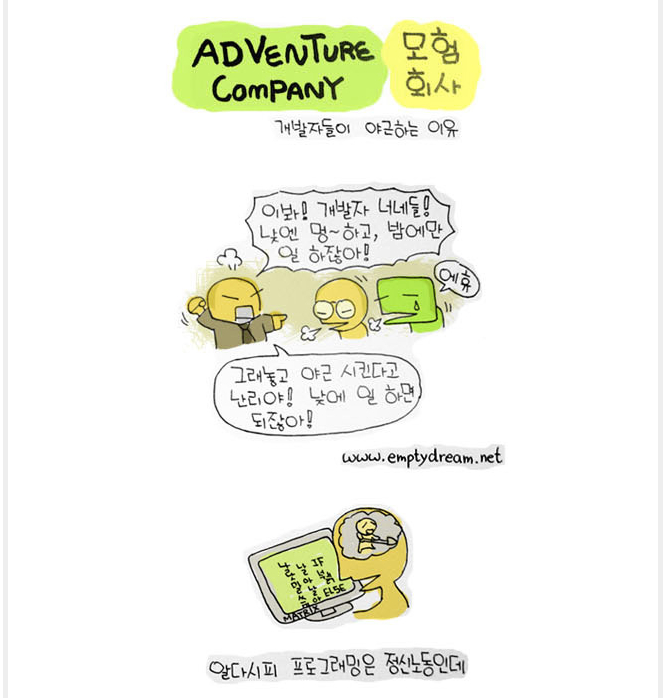 ADVENTURE 모험
COMPANY 회사
개발자들이 야근하는 이유
이봐! 개발자 너네들!
낮엔 멍~하고, 밤에만
일 하잖아!
에휴
그래놓고 야근 시킨다고
난리야! 낮에 일 하면
되잖아!
www.emptydream.net
IF
ELSE
MATRIX
알다시피 프로그래밍은 정신노동인데